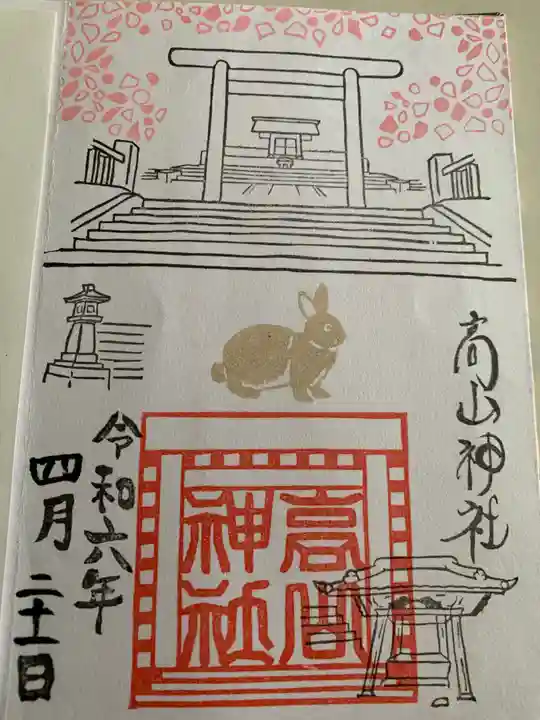 高山神社
高山
神社
令和六年
四月二十一日